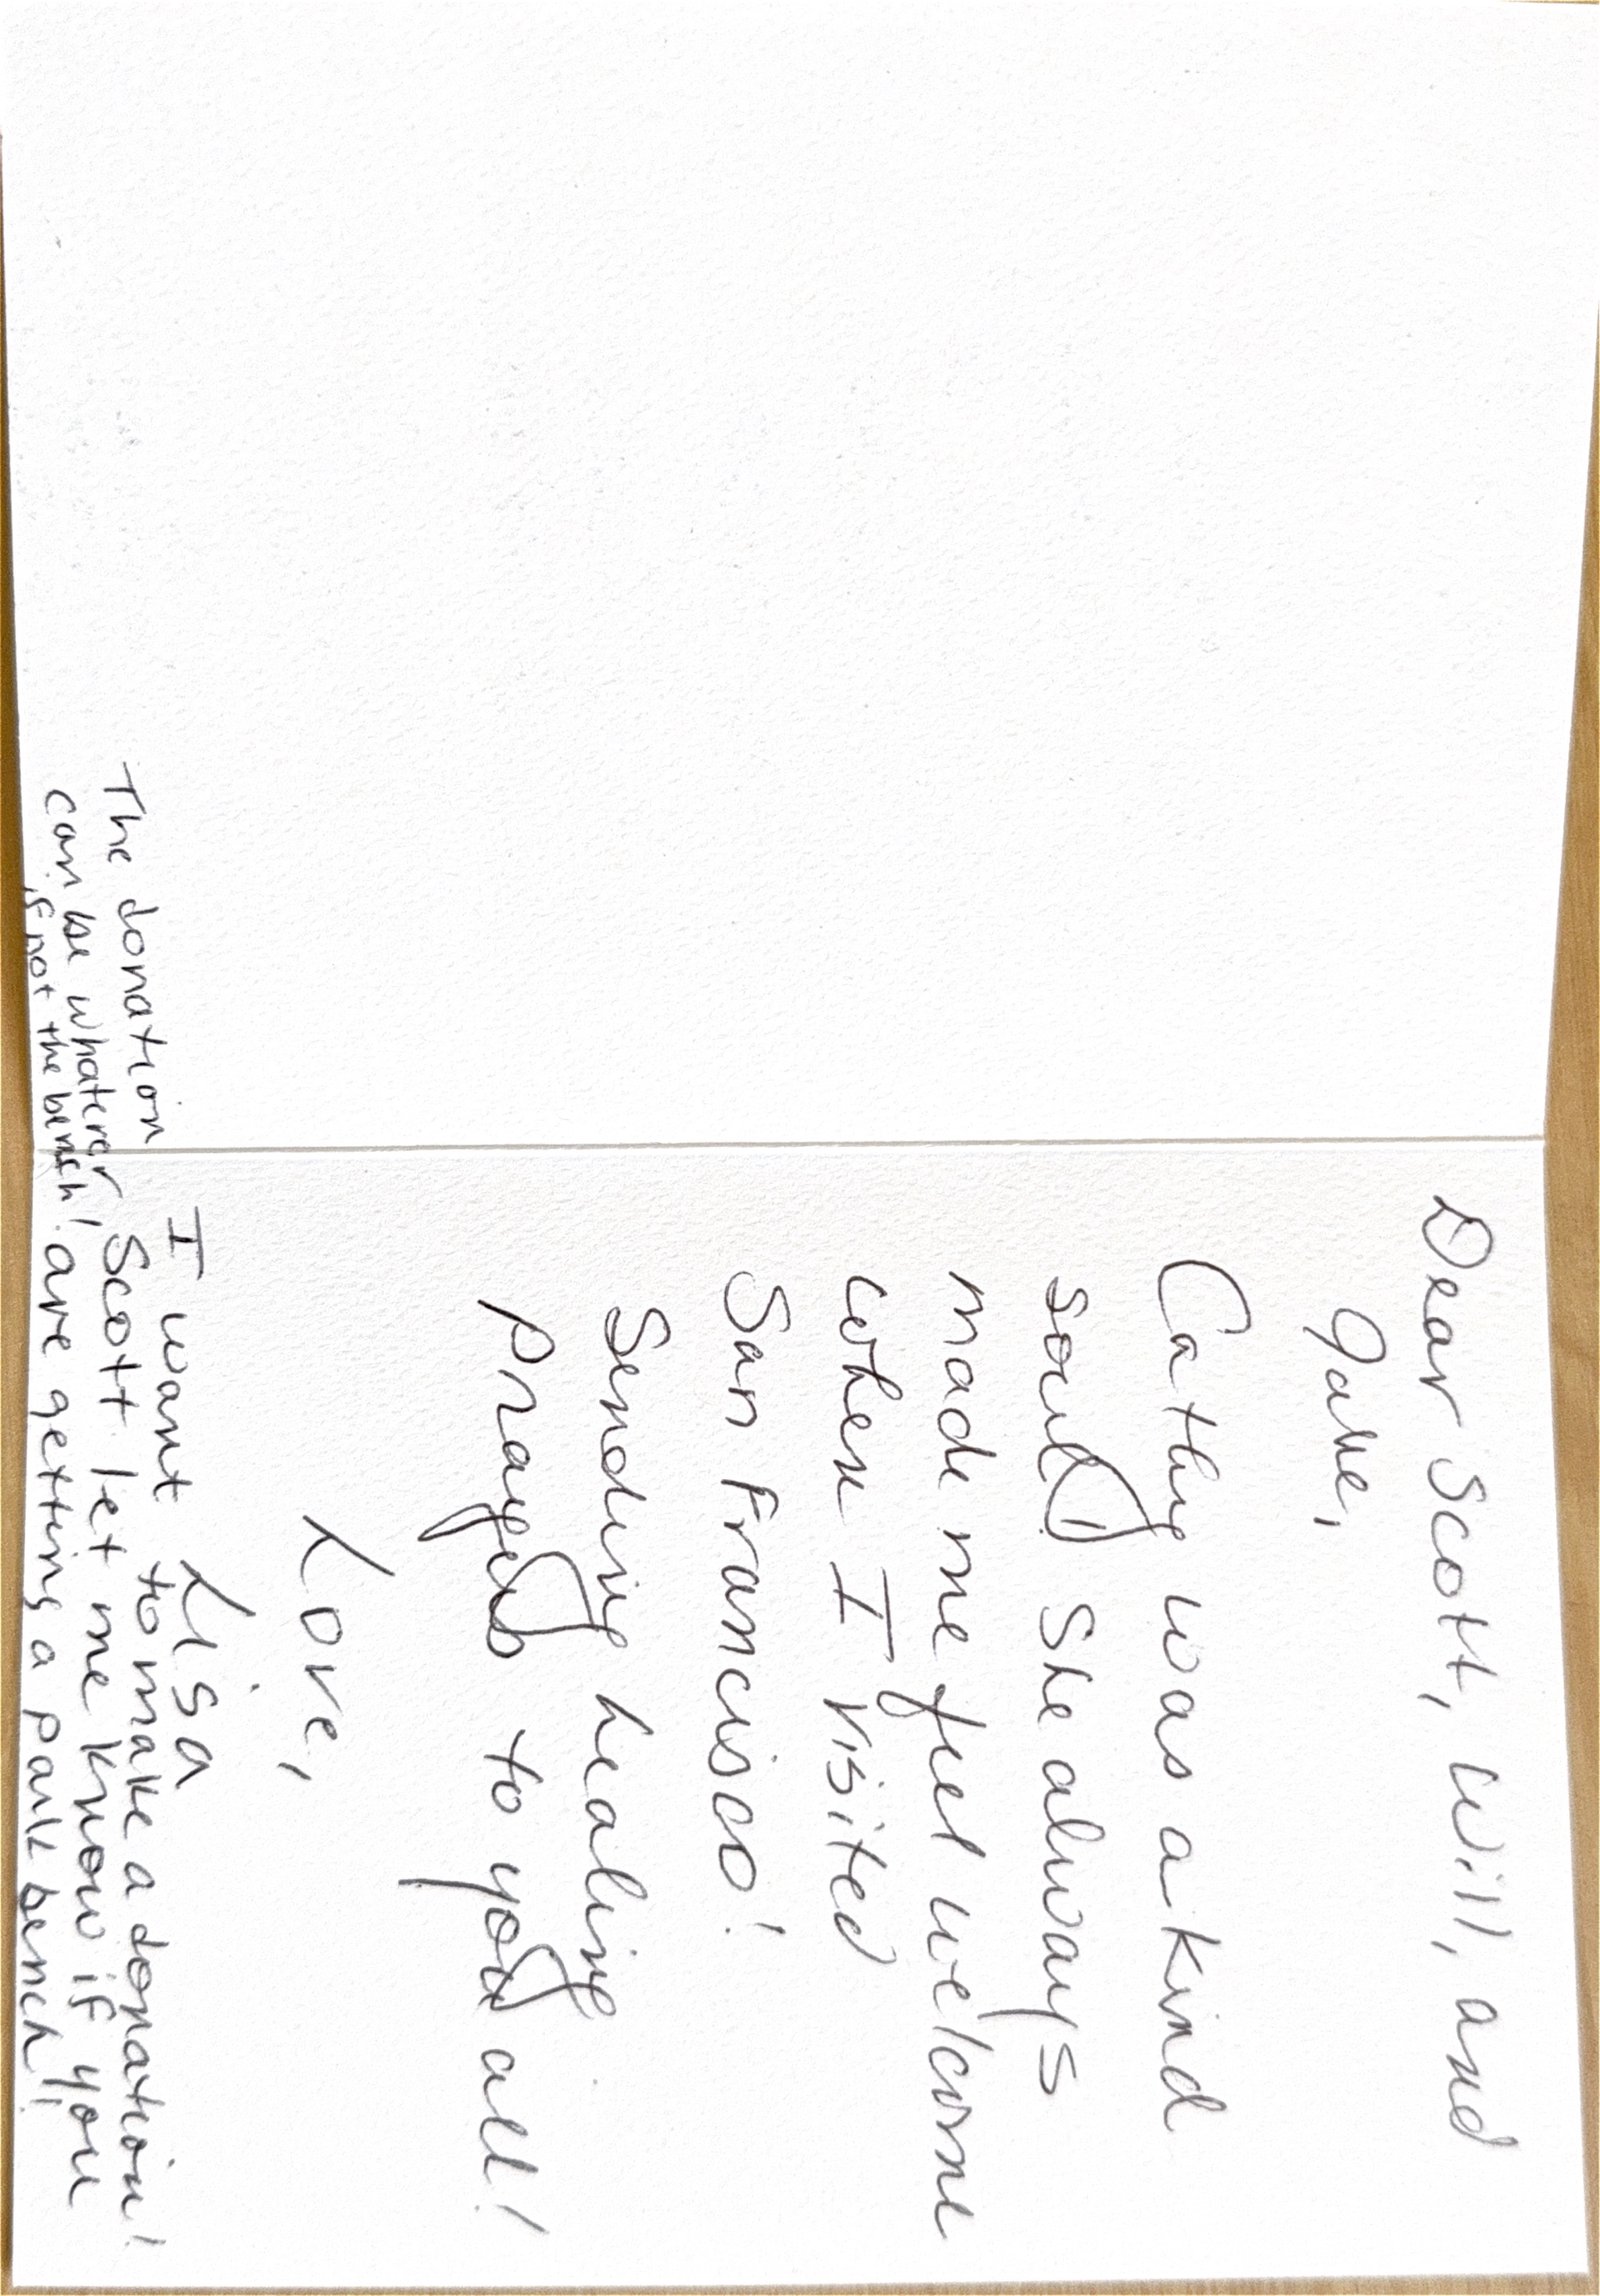 Dear Scott, Will, and
Jake,
Cathy was a kind
soul! She always
made me feel welcome
when I visited
San Francisco!
Sending healing
prayers to you all!
Love,
Lisa
I want to make a donation!
Scott let me know if you
are getting a park bench!!
The donation
can be whatever,
if not the bench!